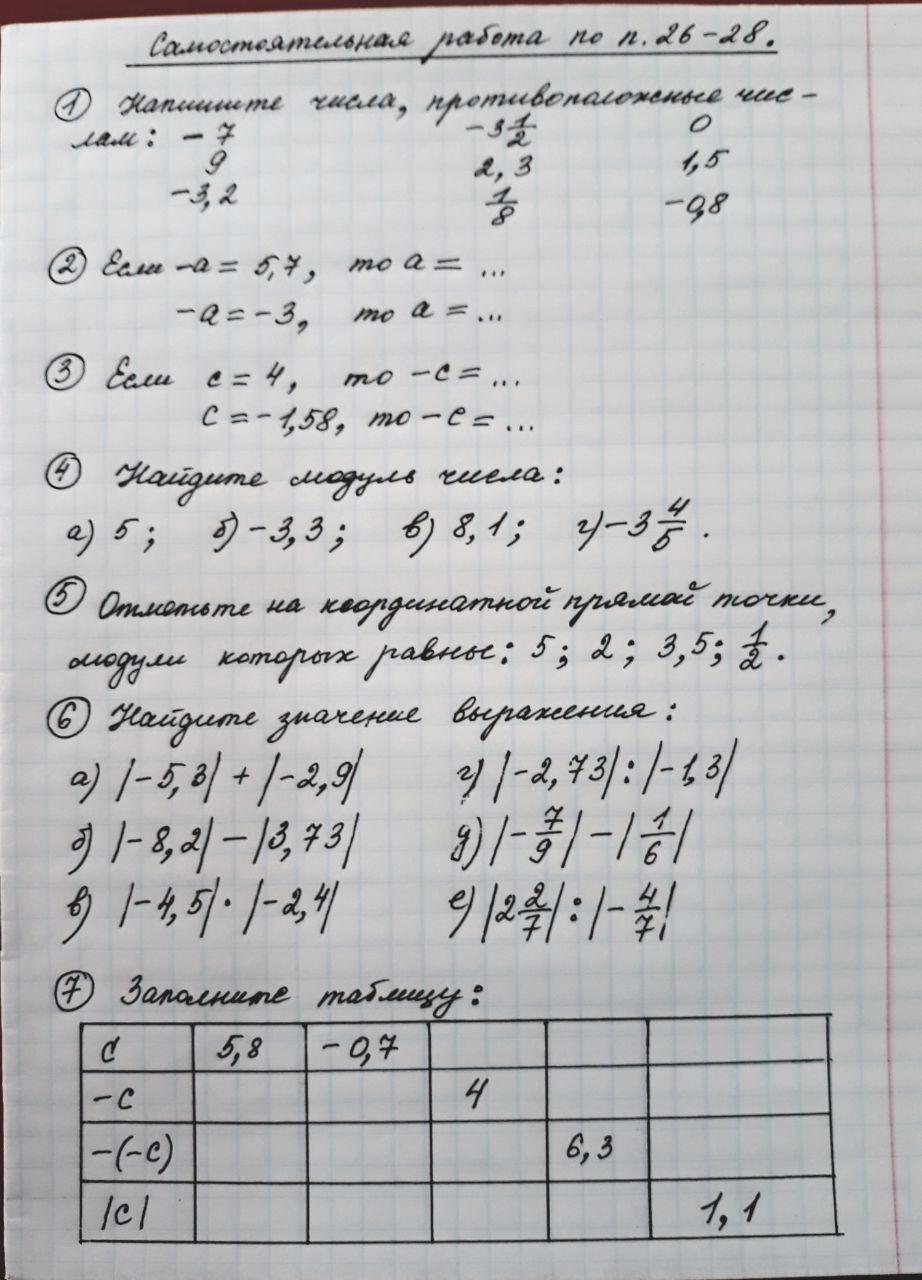 Самостоятельная работа по п. 26-28.
① Напишите числа, противоположные чис-
лам: -7 -3 1/2 0
9 2,3 1,5
-3,2 1/8 -0,8
② Если -а = 5,7, то а = ...
-а = -3, то а = ...
③ Если с = 4, то -с = ...
с = -1,58, то -с = ...
④ Найдите модуль числа:
а) 5; б) -3,3; в) 8,1; г) -3 4/5.
⑤ Отметьте на координатной прямой точки,
модули которых равны: 5; 2; 3,5; 1/2.
⑥ Найдите значение выражения:
а) |-5,3| + |-2,9| г) |-2,73| : |-1,3|
б) |-8,2| - |3,73| д) |-7/9| - |1/6|
в) |-4,5| · |-2,4| е) |2 2/7| : |-4/7|
⑦ Заполните таблицу:
с 5,8 -0,7
-с 4
-(-с) 6,3
|с| 1,1